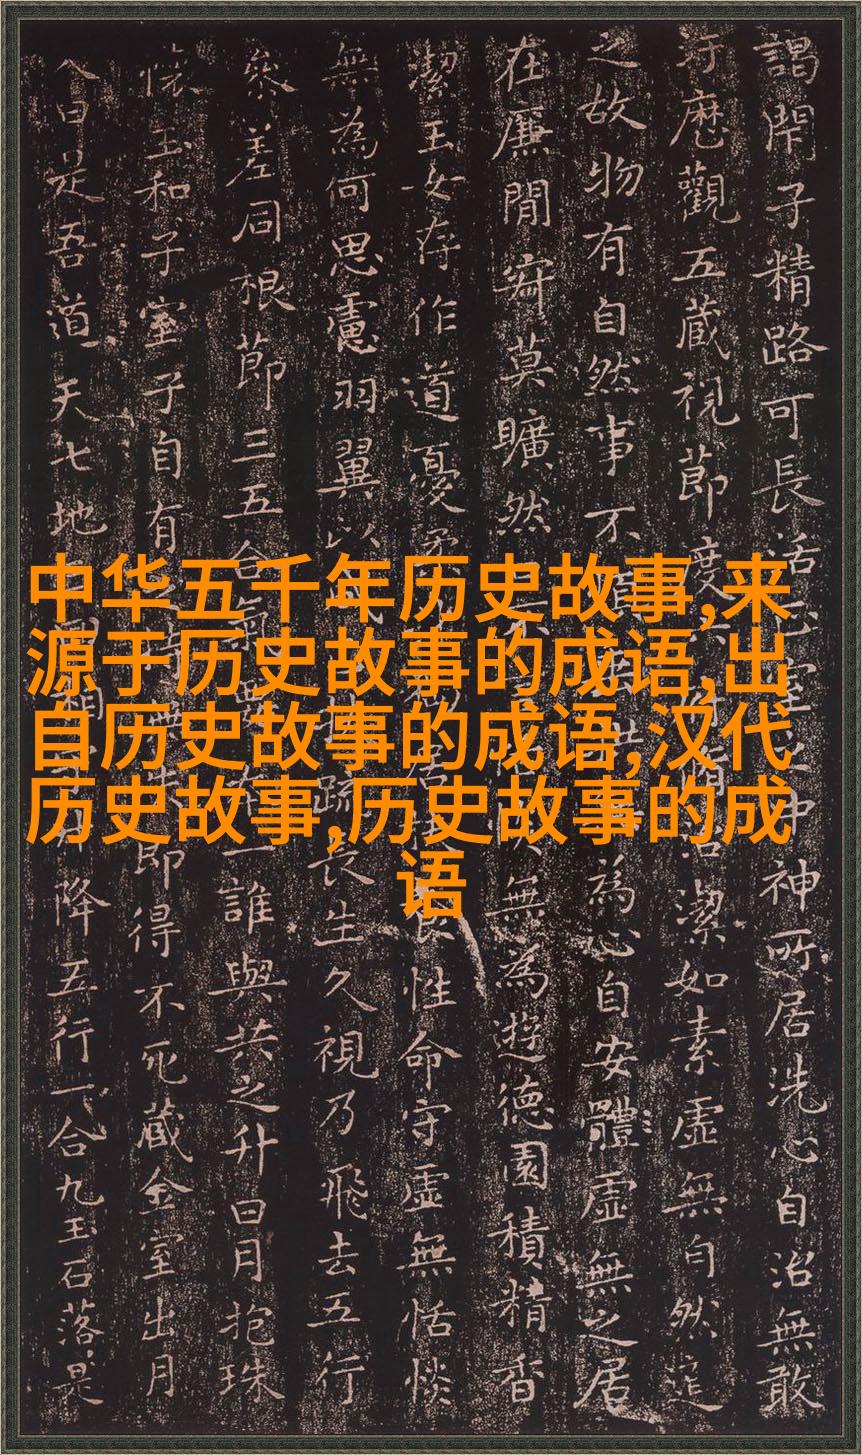 中华五千年历史故事,来
源于历史故事的成语,出
自历史故事的成语,汉代
历史故事,历史故事的成
语
謁閇子精路可長活室之中神所居洗心自治無敢
汙歷觀五藏視節度潔如素虛無自然道
之故物有自然事不為心自安體虛無之居
在廉間寂莫曠然無為遊德園積精香
潔玉女存作道憂柔性命守虛無恬惔
無為何思慮羽翼以疏長生久視乃飛去五行
參差同根節三五合一誰與共之升日月抱珠
懷玉和子室子自有即得不死藏金室出月
入日是吾道天七地相降五行一合九玉石落是